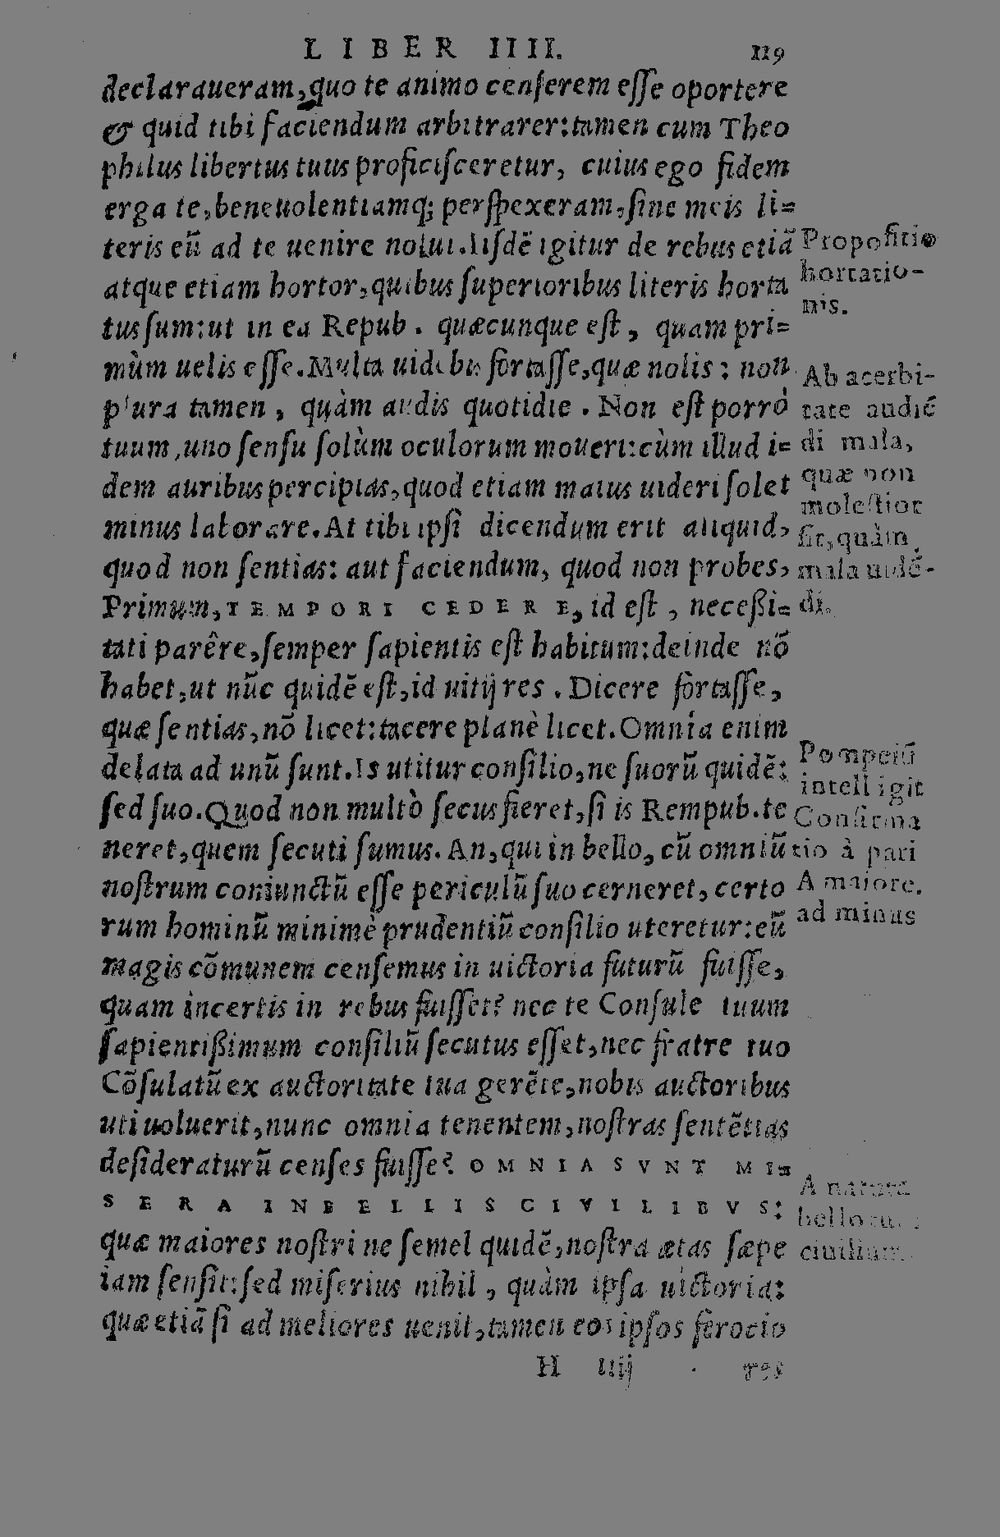 LIBER IIII. 119
declaraueram, quo te animo censerem esse oportere
& quid tibi faciendum arbitrarer: tamen cum Theo
philus libertus tuus proficisceretur, cuius ego fidem
erga te, beneuolentiamq; perspexeram, sine meis li=
teris eũ ad te uenire nolui. Iisdẽ igitur de rebus etiã
atque etiam hortor, quibus superioribus literis horta
tus sum: ut in ea Repub. quæcunque est, quam pri=
mùm uelis esse. Multa uidebis fortasse, quæ nolis: non
plura tamen, quàm audis quotidie. Non est porrò
tuum, uno sensu solùm oculorum moueri: cùm illud i=
dem auribus percipias, quod etiam maius uideri solet
minus laborare. At tibi ipsi dicendum erit aliquid,
quod non sentias: aut faciendum, quod non probes,
Primum, TEMPORI CEDERE, id est, neceßi=
tati parêre, semper sapientis est habitum: deinde nõ
habet, ut nũc quidẽ est, id uitij res. Dicere fortasse,
quæ sentias, nõ licet: tacere planè licet. Omnia enim
delata ad unũ sunt. Is utitur consilio, ne suorũ quidẽ:
sed suo. Quod non multò secus fieret, si is Rempub. te
neret, quem secuti sumus. An, qui in bello, cũ omniũ
nostrum coniunctũ esse periculũ suo cerneret, certo
rum hominũ minimè prudentiũ consilio uteretur: eũ
magis cõmunem censemus in uictoria futurũ fuisse,
quam incertis in rebus fuisset? nec te Consule tuum
sapientißimum consiliũ secutus esset, nec fratre tuo
Cõsulatũ ex auctoritate tua gerẽte, nobis auctoribus
uti uoluerit, nunc omnia tenentem, nostras sentẽtias
desideraturũ censes fuisse? OMNIA SVNT MI=
SERA IN BELLIS CIVILIBVS:
quæ maiores nostri ne semel quidẽ, nostra ætas sæpe
iam sensit: sed miserius nihil, quàm ipsa uictoria:
quæ etiã si ad meliores uenit, tamen eos ipsos ferocio
H iiij res
Propositio
hortatio-
nis.
Ab acerbi-
tate audiẽ
di mala,
quæ non
molestior
sit, quàm
mala uidẽ-
di.
Pompeiũ
intelligit
Confirma
tio à pari
A maiore.
ad minus
A natura
bellorum
ciuilium.